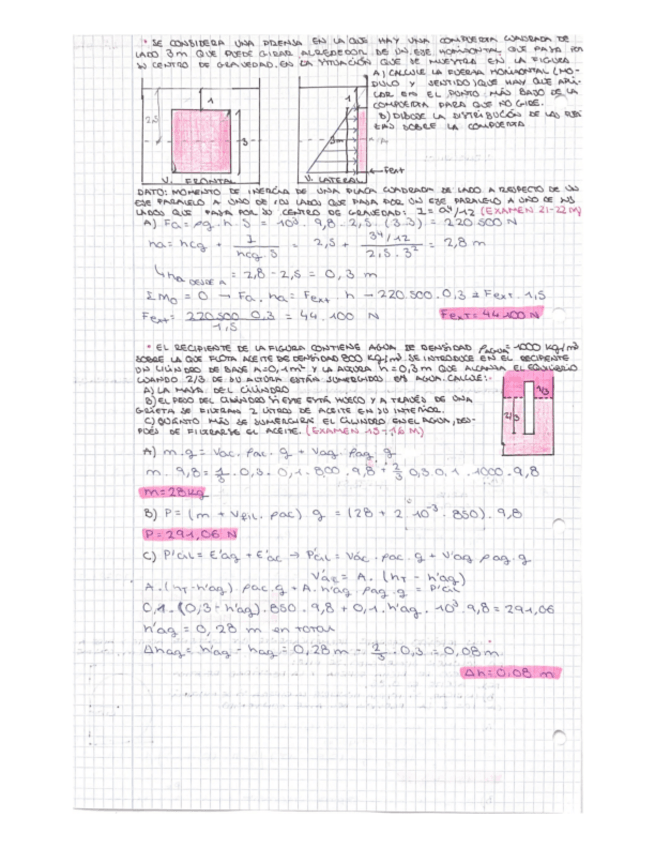 * SE CONSIDERA UNA PRENSA EN LA QUE HAY UNA COMPUERTA CUADRADA DE
LADO 3 m QUE PUEDE GIRAR ALREDEDOR DE UN EJE HORIZONTAL QUE PASA POR
SU CENTRO DE GRAVEDAD. EN LA SITUACIÓN QUE SE MUESTRA EN LA FIGURA
A) CALCULE LA FUERZA HORIZONTAL (MÓ-
DULO Y SENTIDO) QUE HAY QUE APLI-
CAR EN EL PUNTO MÁS BAJO DE LA
COMPUERTA PARA QUE NO GIRE.
B) DIBUJE LA DISTRIBUCIÓN DE LAS
SOBRE LA COMPUERTA
1
2,5
3
V. FRONTAL
1
3m
Fext
V. LATERAL
DATO: MOMENTO DE INERCIA DE UNA PLACA CUADRADA DE LADO A RESPECTO DE UN
EJE PARALELO A UNO DE SUS LADOS QUE PASA POR UN EJE PARALELO A UNO DE SUS
LADOS QUE PASA POR SU CENTRO DE GRAVEDAD: I = a⁴/12 (EXAMEN 21-22 M)
A) Fa = ρg · h · S = 10³ · 9,8 · 2,5 · (3·3) = 220 500 N
ha = hcg + I / hcg · S = 2,5 + 3⁴/12 / 2,5 · 3² = 2,8 m
↳ ha DESDE = 2,8 - 2,5 = 0,3 m
ΣMo = 0 → Fa · ha = Fext h → 220 500 · 0,3 = Fext · 1,5
Fext = 220 500 · 0,3 / 1,5 = 44 100 N
Fext = 44 100 N
* EL RECIPIENTE DE LA FIGURA CONTIENE AGUA DE DENSIDAD ρagua = 1000 kg/m³
SOBRE LA QUE FLOTA ACEITE DE DENSIDAD 800 kg/m³. SE INTRODUCE EN EL RECIPIENTE
UN CILINDRO DE BASE A=0,1 m² Y LA ALTURA h=0,3 m QUE ALCANZA EL EQUILIBRIO
CUANDO 2/3 DE SU ALTURA ESTÁN SUMERGIDOS EN AGUA. CALCULE:
A) LA MASA DEL CILINDRO
B) EL PESO DEL CILINDRO SI ESTE ESTÁ HUECO Y A TRAVÉS DE UNA
GRIETA SE FILTRAN 2 LITROS DE ACEITE EN SU INTERIOR.
C) CUÁNTO MÁS SE SUMERGIRÁ EL CILINDRO EN EL AGUA, DES-
PUÉS DE FILTRARSE EL ACEITE. (EXAMEN 15-16 M)
1/3
2/3
A) m · g = Vac · ρac · g + Vag · ρag · g
m · 9,8 = 1/3 · 0,3 · 0,1 · 800 · 9,8 + 2/3 0,3 0,1 · 1000 · 9,8
m = 28 kg
B) P = (m + Vfil · ρac) g = (28 + 2 · 10⁻³ · 850) · 9,8
P = 291,06 N
C) P'cil = E'ag + E'ac → P'cil = V'ac · ρac · g + V'ag ρag · g
V'ac = A · (hT - h'ag)
A · (hT - h'ag) · ρac · g + A · h'ag · ρag · g = P'cil
0,1 · (0,3 - h'ag) · 850 · 9,8 + 0,1 · h'ag · 10³ · 9,8 = 291,06
h'ag = 0,28 m en total
Δhag = h'ag - hag = 0,28 m - 2/3 · 0,3 = 0,08 m
Δh = 0,08 m